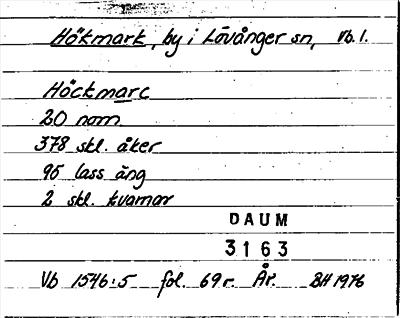 Hökmark, by i Lövånger sn, Vb. l.
Höckmarc
20 nom
378 skl. åker
95 lass äng
2 skl. kvarnar
DAUM
3163
Vb 1546:5 fol. 69r. År. BH 1976